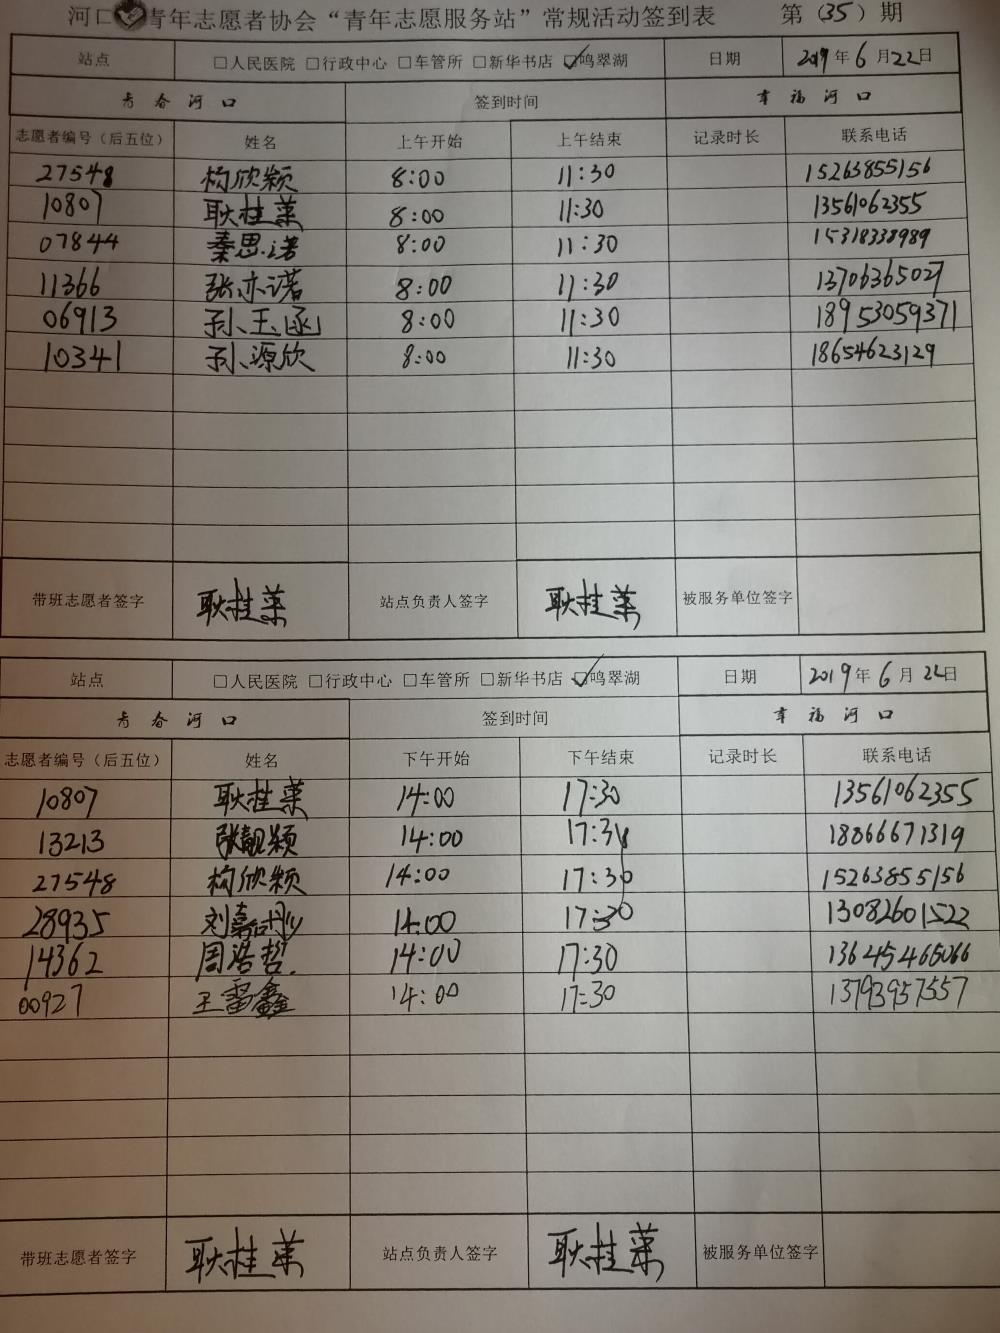 河口青年志愿者协会“青年志愿服务站”常规活动签到表 第（35）期
站点 □人民医院 □行政中心 □车管所 □新华书店 ☑鸣翠湖 日期 2019年6月22日
青春河口 签到时间 幸福河口
志愿者编号（后五位） 姓名 上午开始 上午结束 记录时长 联系电话
27548 构欣颖 8:00 11:30 15263855156
10807 耿桂菜 8:00 11:30 13561062355
07844 秦思诺 8:00 11:30 15318338989
11366 张亦诺 8:00 11:30 13706365027
06913 孙玉函 8:00 11:30 18953059371
10341 孙源欣 8:00 11:30 18654623129
带班志愿者签字 耿桂菜 站点负责人签字 耿桂菜 被服务单位签字
站点 □人民医院 □行政中心 □车管所 □新华书店 ☑鸣翠湖 日期 2019年6月22日
青春河口 签到时间 幸福河口
志愿者编号（后五位） 姓名 下午开始 下午结束 记录时长 联系电话
10807 耿桂菜 14:00 17:30 13561062355
13213 张靓颖 14:00 17:30 18866671319
27548 构欣颖 14:00 17:30 15263855156
28935 刘嘉 14:00 17:30 13082601522
14362 周浩哲 14:00 17:30 13645465066
00927 王雷鑫 14:00 17:30 13793957557
带班志愿者签字 耿桂菜 站点负责人签字 耿桂菜 被服务单位签字